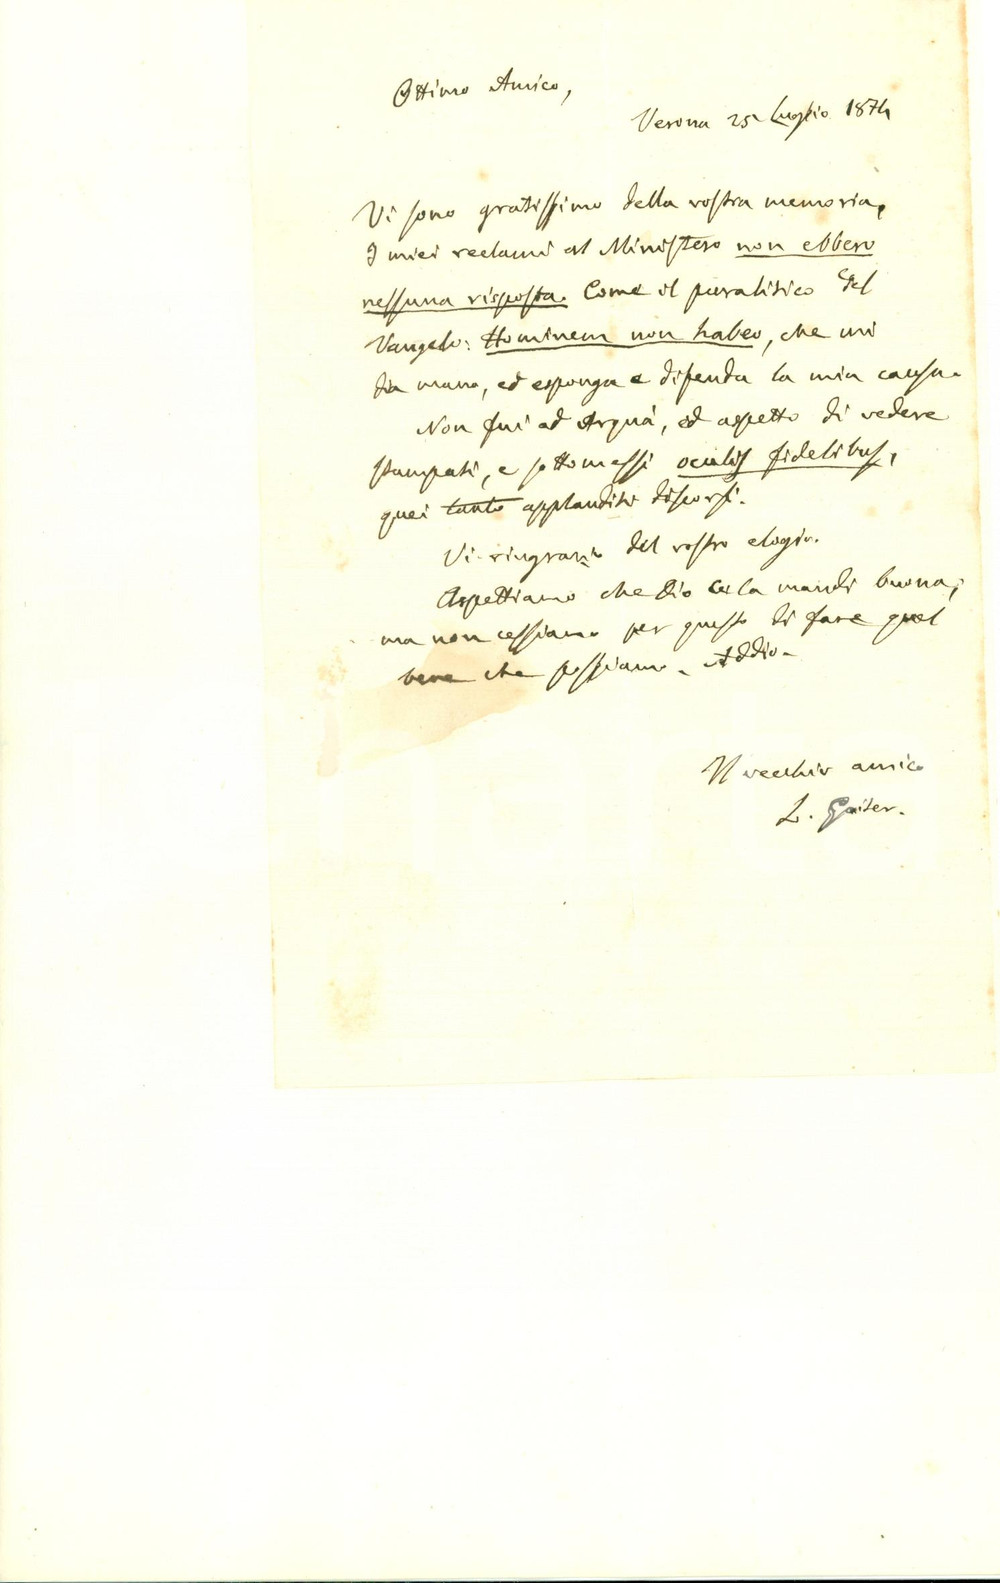 Ottimo Amico,
Verona 25 Luglio 1874
Vi sono gratissimo della vostra memoria.
I miei reclami al Ministero non ebbero
nessuna risposta. Come il paralitico del
Vangelo: Hominem non habeo, che mi
dia mano, ed esponga e difenda la mia causa.
Non fui ad Arquà, ed aspetto di vedere
stampati, e sottomessi oculis fidelibus,
quei tanto applauditi discorsi.
Vi ringrazio del vostro elogio.
Aspettiamo che Dio ce la mandi buona,
ma non cessiamo per questo di fare quel
bene che possiamo. Addio.
Il vecchio amico
L. Gaiter.